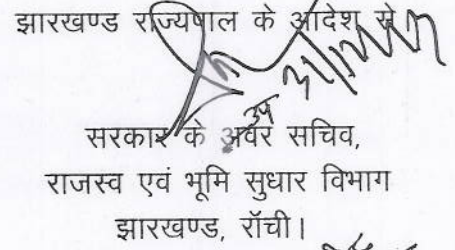 झारखण्ड राज्यपाल के आदेश से
उप
सरकार के अवर सचिव,
राजस्व एवं भूमि सुधार विभाग
झारखण्ड, राँची।